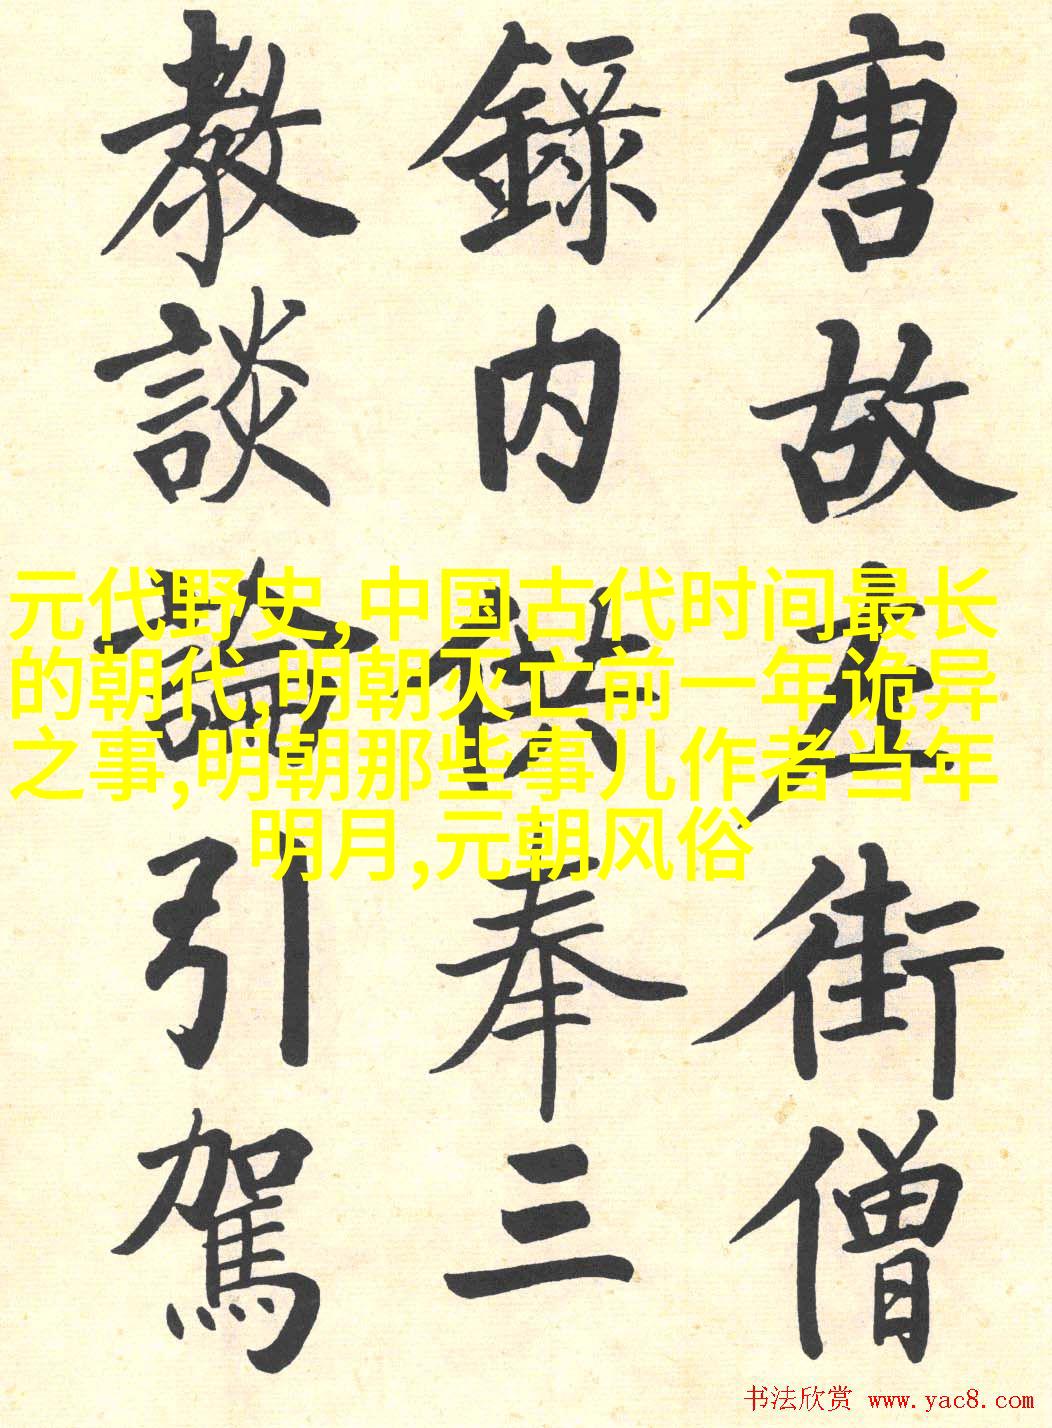 唐故左街僧
錄内供奉三
教談論引駕
元代野史,中国古代时间最长
的朝代,明朝灭亡前一年诡异
之事,明朝那些事儿作者当年
明月,元朝风俗
书法欣赏 www.yac8.com